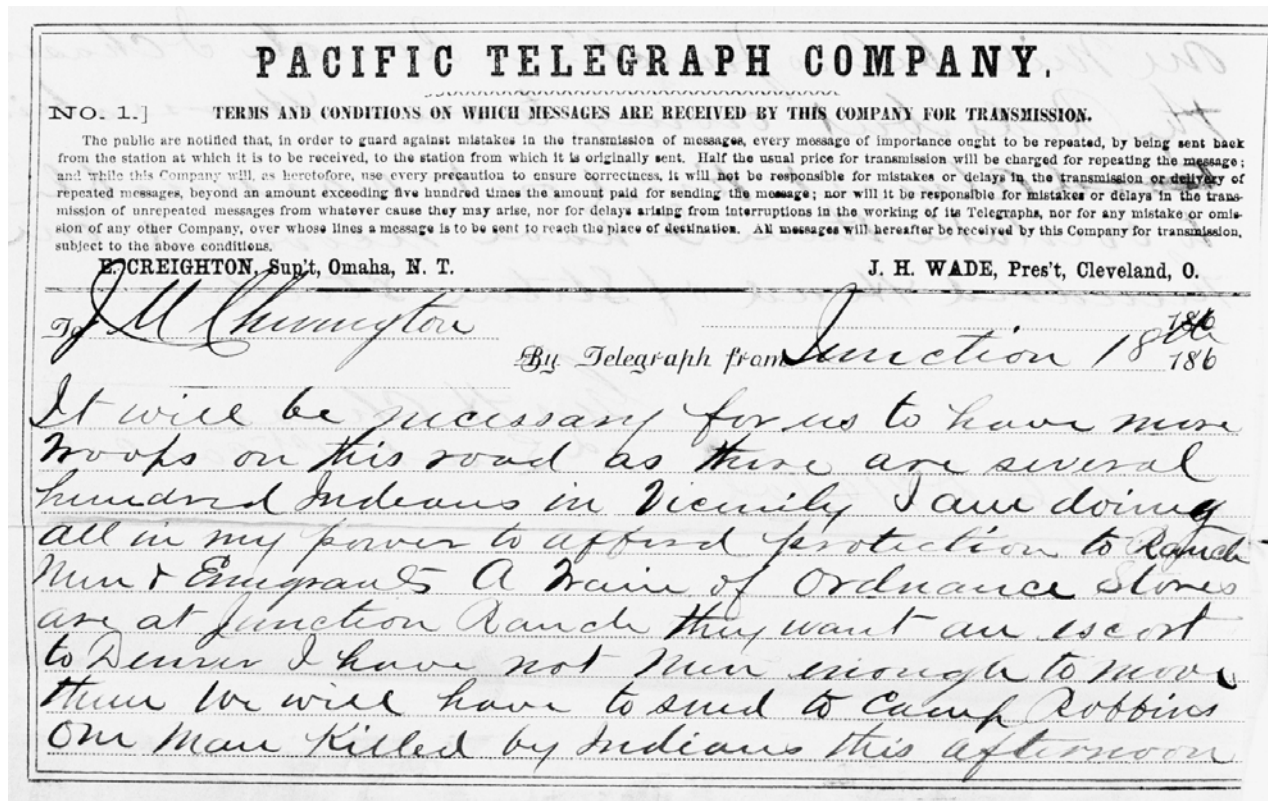 PACIFIC TELEGRAPH COMPANY.
NO. 1.] TERMS AND CONDITIONS ON WHICH MESSAGES ARE RECEIVED BY THIS COMPANY FOR TRANSMISSION.
The public are notified that, in order to guard against mistakes in the transmission of messages, every message of importance ought to be repeated, by being sent back
from the station at which it is to be received, to the station from which it is originally sent. Half the usual price for transmission will be charged for repeating the message;
and while this Company will, as heretofore, use every precaution to ensure correctness, it will not be responsible for mistakes or delays in the transmission or delivery of
repeated messages, beyond an amount exceeding five hundred times the amount paid for sending the message; nor will it be responsible for mistakes or delays in the trans-
mission of unrepeated messages from whatever cause they may arise, nor for delays arising from interruptions in the working of its Telegraphs, nor for any mistake or omis-
sion of any other Company, over whose lines a message is to be sent to reach the place of destination. All messages will hereafter be received by this Company for transmission,
subject to the above conditions.
E. CREIGHTON, Sup't, Omaha, N. T. J. H. WADE, Pres't, Cleveland, O.
186
To J M Chivington
By Telegraph from Junction 18th 186
It will be necessary for us to have more
troops on this road as there are several
hundred Indians in Vicinity I am doing
all in my power to afford protection to Ranch
Men & Emigrants A train of Ordnance Stores
are at Junction Ranch they want an escort
to Denver I have not Men enough to move
them We will have to send to Camp Robbins
One Man Killed by Indians this afternoon